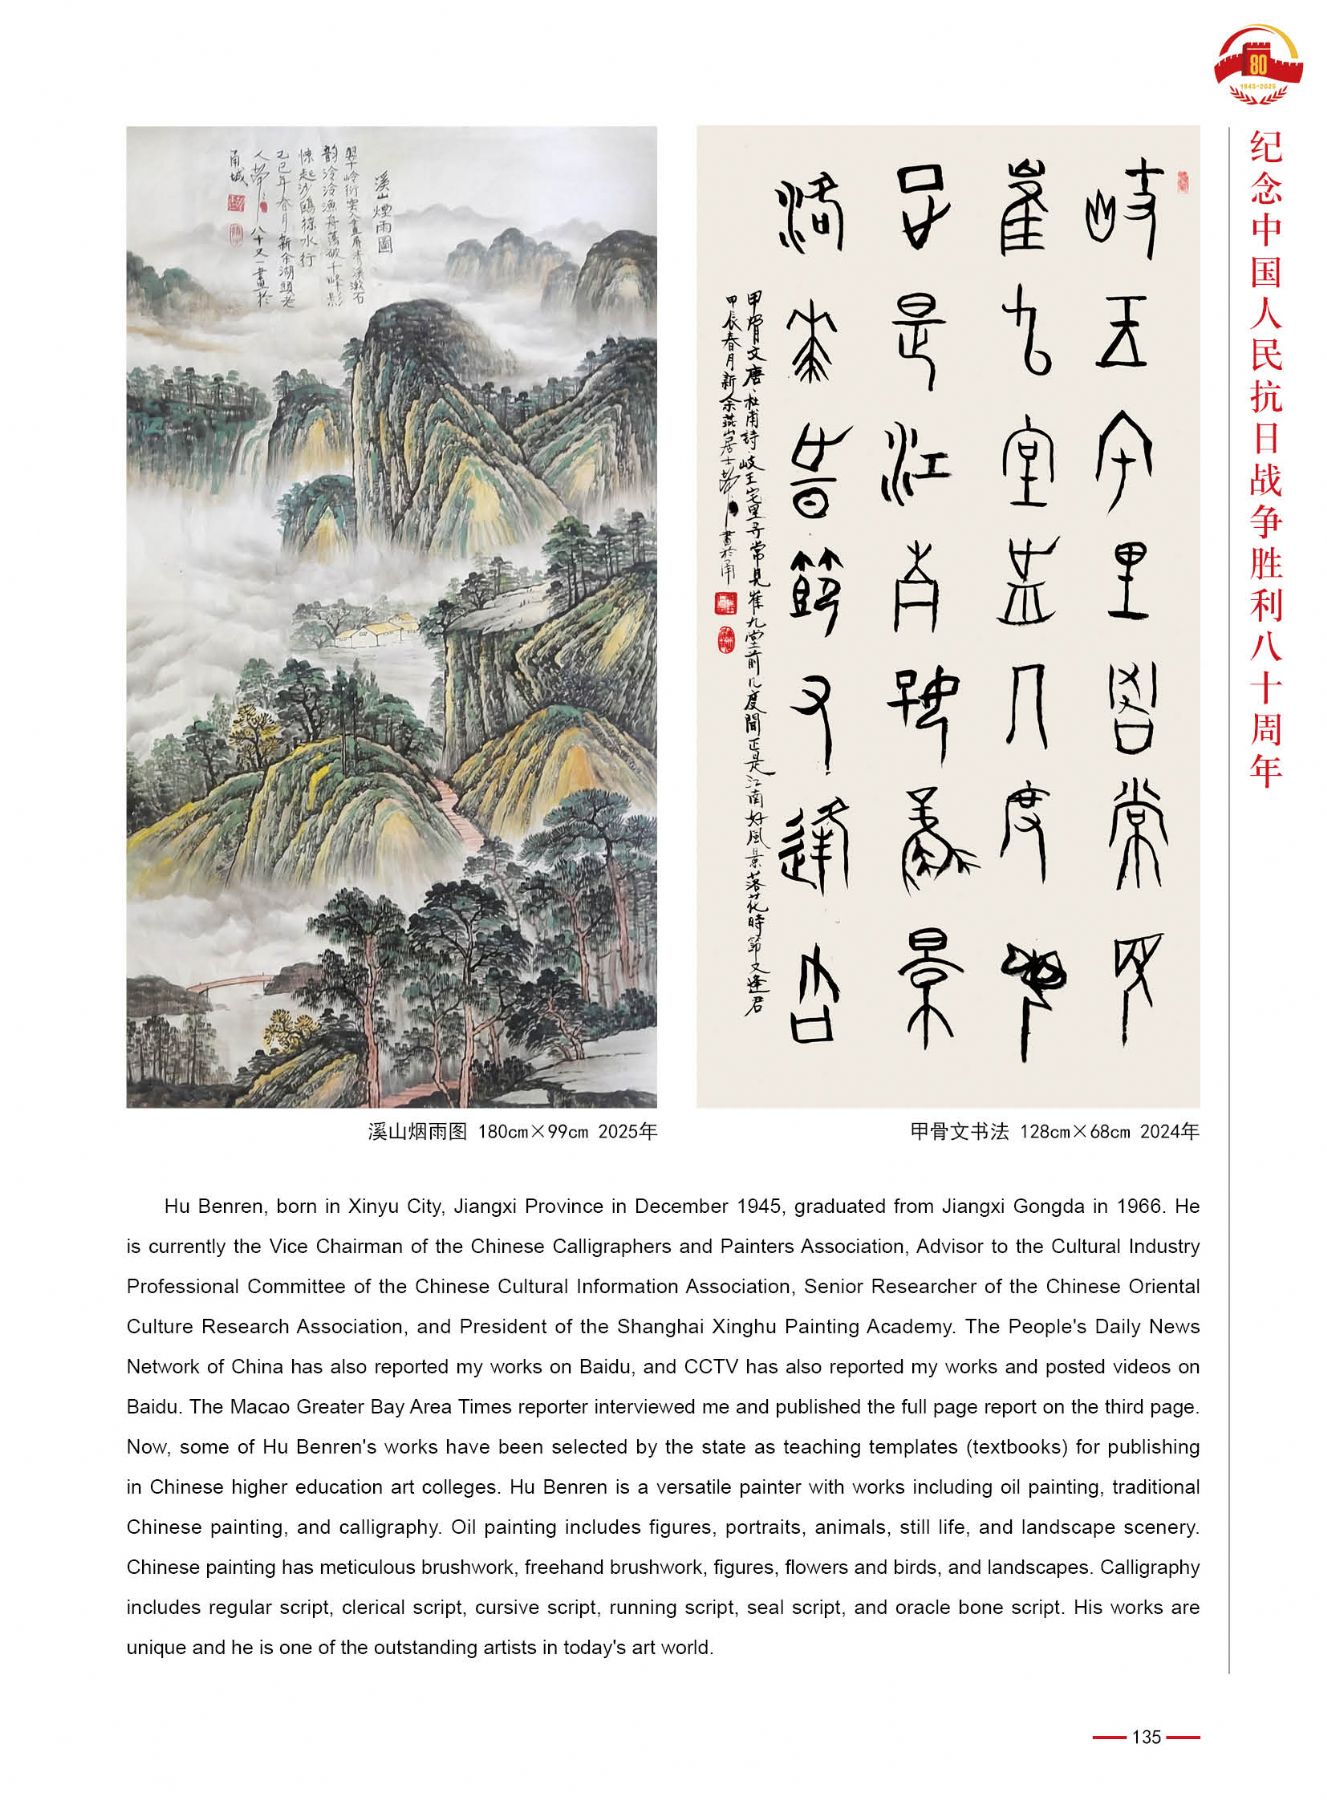 80
1945-2025
纪念中国人民抗日战争胜利八十周年
溪山煙雨圖
乙巳年春月新余湖頭老
人
八十又一畫於
甬城
甲骨文唐·杜甫詩岐王宅里尋常見崔九堂前几度聞正是江南好風景落花時節又逢君
甲辰春月新余燕山居士
書於甬
溪山烟雨图 180cm×99cm 2025年
甲骨文书法 128cm×68cm 2024年
Hu Benren, born in Xinyu City, Jiangxi Province in December 1945, graduated from Jiangxi Gongda in 1966. He
is currently the Vice Chairman of the Chinese Calligraphers and Painters Association, Advisor to the Cultural Industry
Professional Committee of the Chinese Cultural Information Association, Senior Researcher of the Chinese Oriental
Culture Research Association, and President of the Shanghai Xinghu Painting Academy. The People's Daily News
Network of China has also reported my works on Baidu, and CCTV has also reported my works and posted videos on
Baidu. The Macao Greater Bay Area Times reporter interviewed me and published the full page report on the third page.
Now, some of Hu Benren's works have been selected by the state as teaching templates (textbooks) for publishing
in Chinese higher education art colleges. Hu Benren is a versatile painter with works including oil painting, traditional
Chinese painting, and calligraphy. Oil painting includes figures, portraits, animals, still life, and landscape scenery.
Chinese painting has meticulous brushwork, freehand brushwork, figures, flowers and birds, and landscapes. Calligraphy
includes regular script, clerical script, cursive script, running script, seal script, and oracle bone script. His works are
unique and he is one of the outstanding artists in today's art world.
135